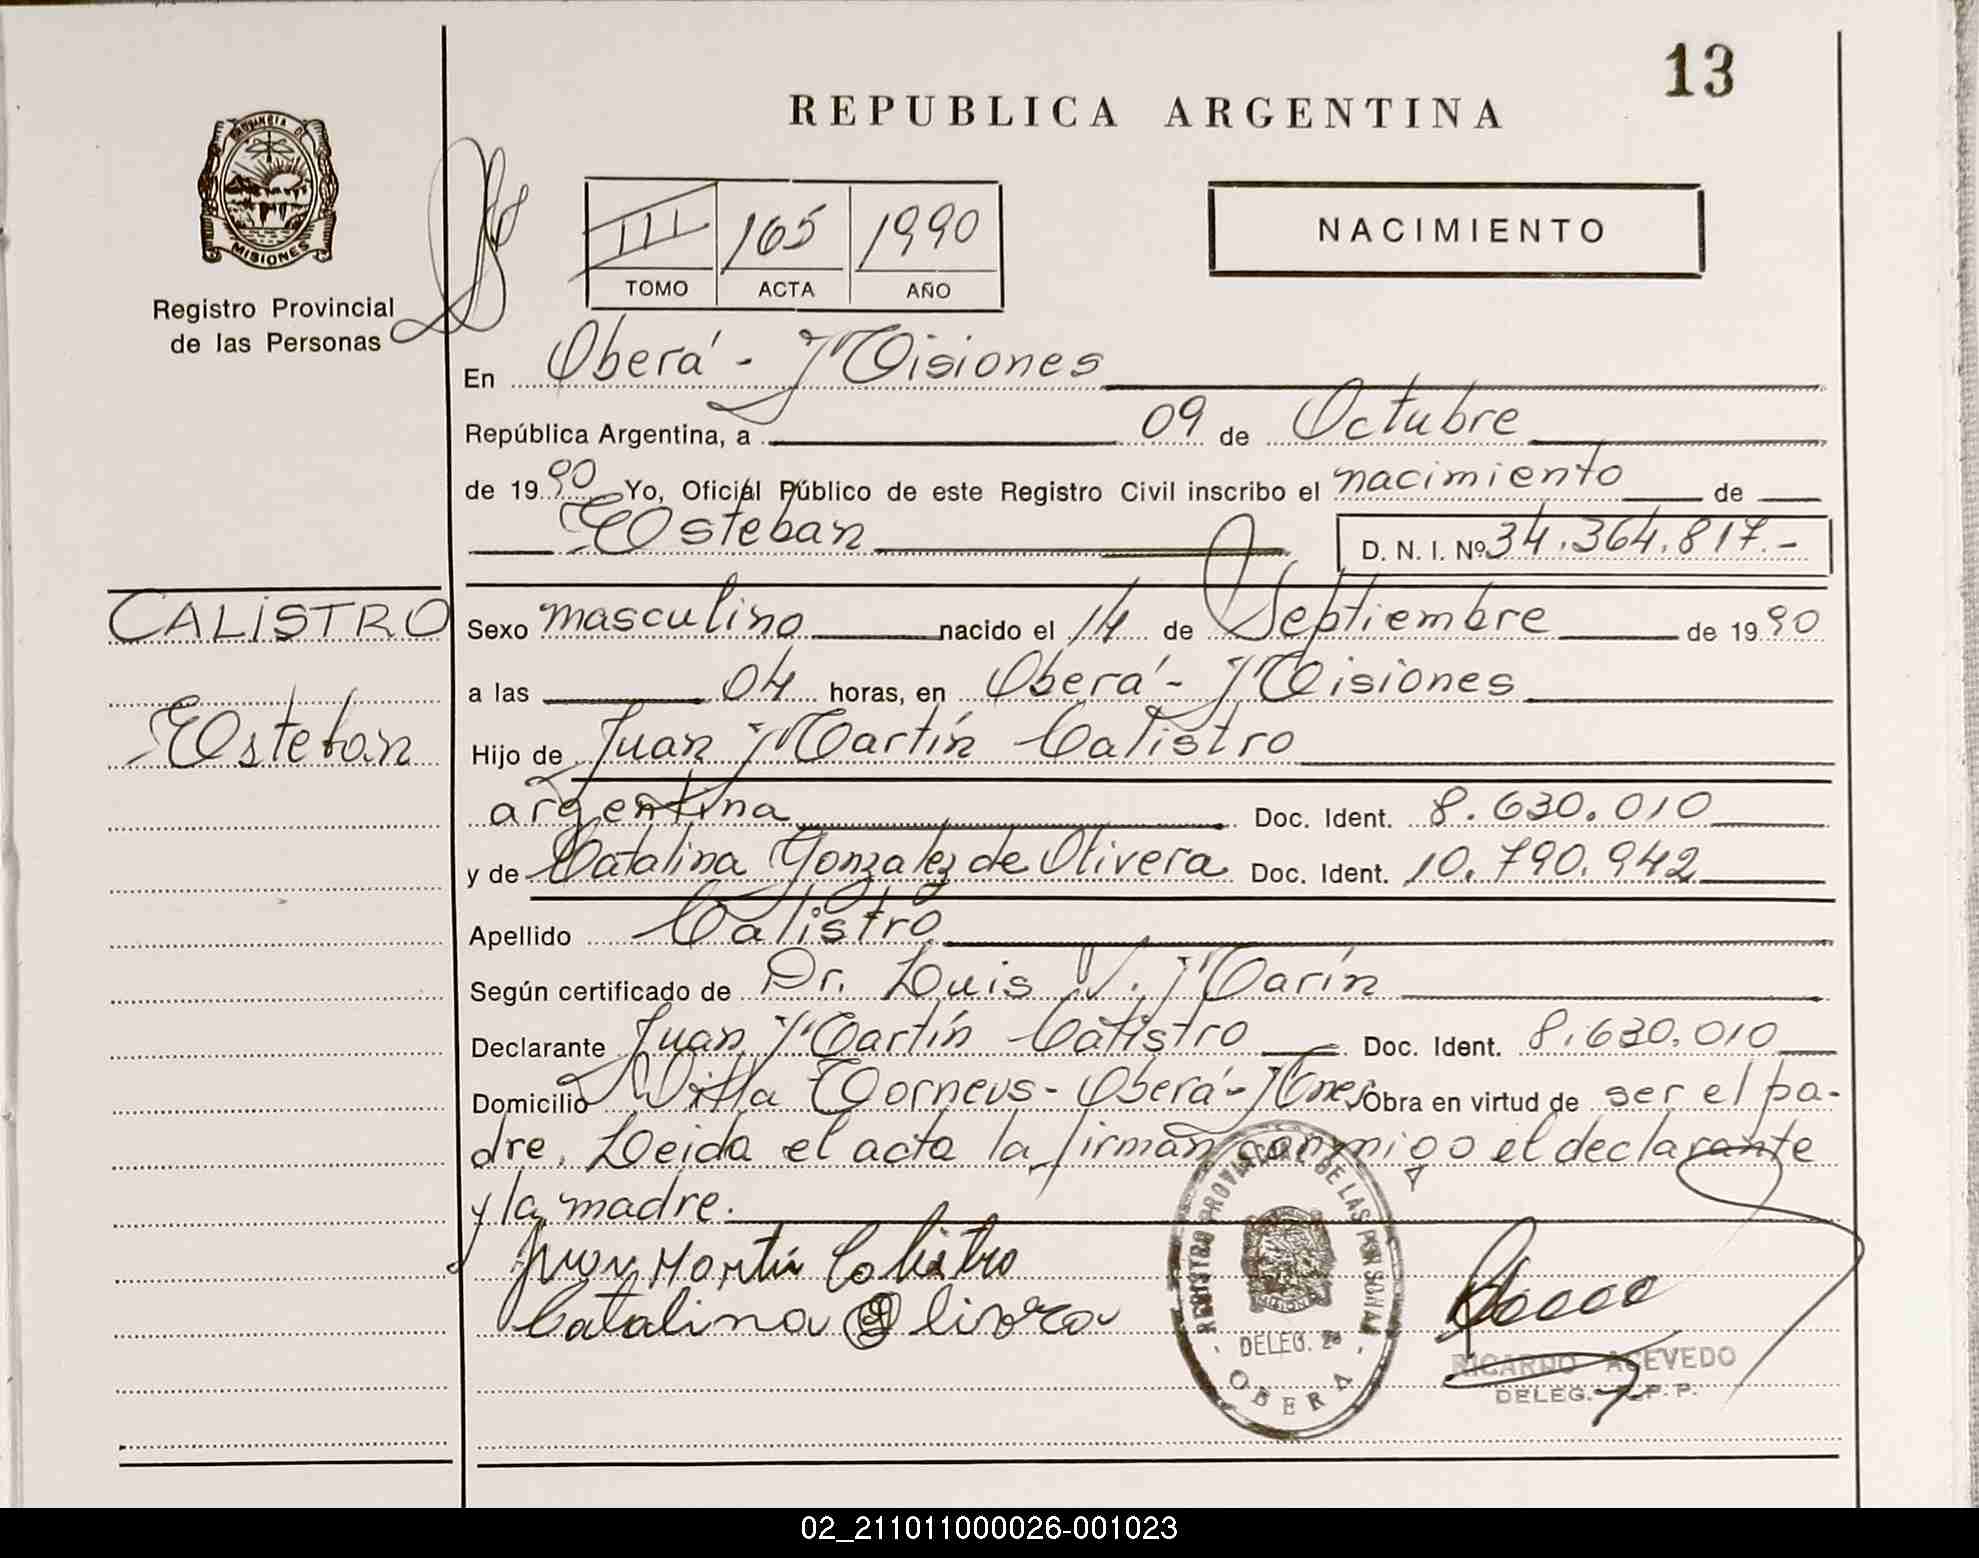 13
REPUBLICA ARGENTINA
PROVINCIA DE
MISIONES
Registro Provincial
de las Personas
III 165 1990
TOMO ACTA AÑO
NACIMIENTO
En Oberá - Misiones
República Argentina, a 09 de Octubre
de 1990 Yo, Oficial Público de este Registro Civil inscribo el nacimiento de
Esteban D. N. I. Nº 34.364.817.-
CALISTRO
Esteban
Sexo masculino nacido el 14 de Septiembre de 1990
a las 04 horas, en Oberá - Misiones
Hijo de Juan Martín Calistro
argentina Doc. Ident. 8.630.010
y de Catalina Gonzalez de Olivera Doc. Ident. 10.790.942
Apellido Calistro
Según certificado de Dr. Luis V. Marín
Declarante Juan Martín Calistro Doc. Ident. 8.630.010
Domicilio Villa Obera - Mnes Obra en virtud de ser el pa-
dre. Leida el acta la firman conmigo el declarante
y la madre.
Juan Martín Calistro
Catalina G Olivera
REGISTRO PROVINCIAL DE LAS PERSONAS
MISIONES
DELEG.
OBERA
RICARDO ACEVEDO
DELEG. R.P.P.
02_211011000026-001023